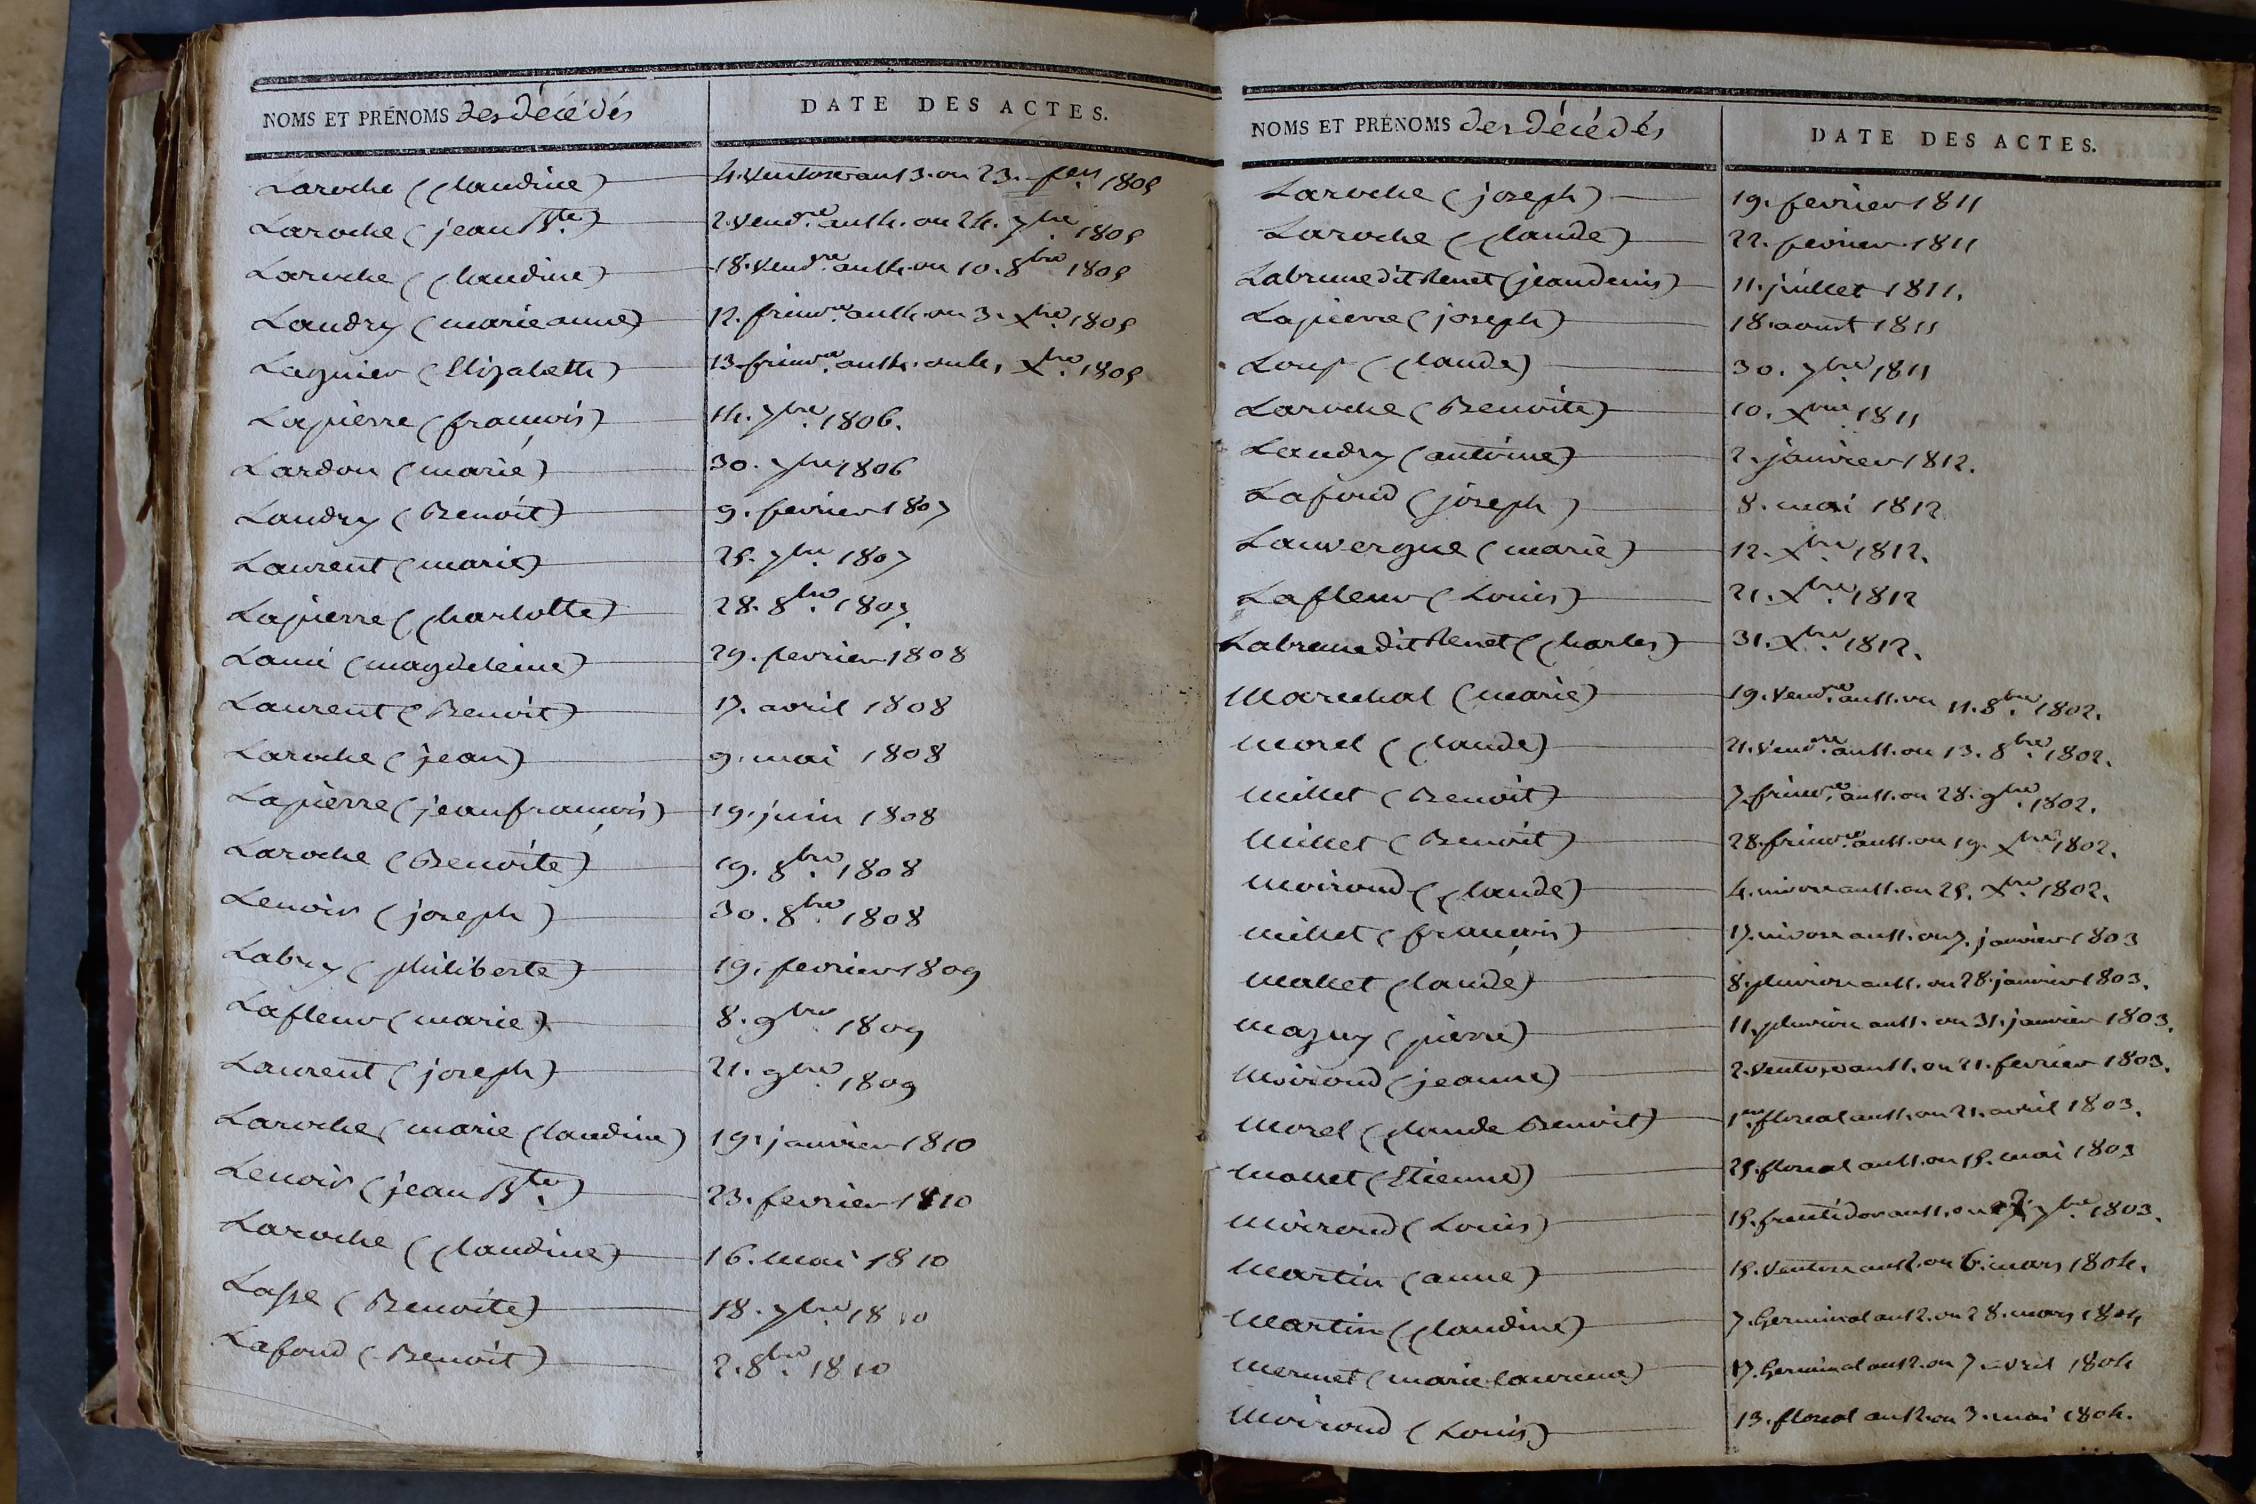 NOMS ET PRÉNOMS des décédés DATE DES ACTES.
Laroche (Claudine) 4. Ventose an 13. ou 23. fev 1805
Laroche (jean Bte.) 2. Vend.re an 14. ou 24. 7bre. 1805
Laroche (Claudine) 18. Vend.re an 14. ou 10. 8bre 1805
Landry (marie anne) 12. frim.re an 14. ou 3. Xbre 1805
Lagnier (Elizabeth) 13. frim.re an 14. ou 4. Xbre. 1805
Lapierre (francois) 14. 7bre. 1806.
Lardon (marie) 30. 7bre 1806
Landry (Benoit) 9. fevrier 1807
Laurent (marie) 25. 7bre. 1807
Lapierre (Charlotte) 28. 8bre. 1807.
Lami (magdeleine) 29. fevrier 1808
Laurent (Benoit) 17. avril 1808
Laroche (jean) 9. mai 1808
Lapierre (jean françois) 19. juin 1808
Laroche (Benoite) 19. 8bre. 1808
Lenoir (joseph) 30. 8bre. 1808
Labry (philiberte) 19. fevrier 1809
Lafleur (marie) 8. 9bre. 1809
Laurent (joseph) 21. 9bre. 1809
Laroche (marie Claudine) 19. janvier 1810
Lenoir (jean Bte.) 23. fevrier 1810
Laroche (Claudine) 16. mai 1810
Lasse (Benoite) 18. 7bre. 1810
Lafond (Benoit) 2. 8bre. 1810
NOMS ET PRÉNOMS des décédés DATE DES ACTES.
Laroche (joseph) 19. fevrier 1811
Laroche (Claude) 22. fevrier 1811
Labrune dit Renet (jean denis) 11. juillet 1811.
Lapierre (joseph) 18. aoust 1811
Loup (Claude) 30. 7bre. 1811
Laroche (Benoite) 10. Xbre. 1811
Landry (antoine) 2. janvier 1812.
Lafond (joseph) 8. mai 1812
Lauvergne (marie) 12. Xbre. 1812.
Lafleur (Louis) 21. Xbre. 1812
Labrune dit Renet (Charles) 31. Xbre. 1812.
Marechal (marie) 19. Vend.re an 11. ou 11. 8bre. 1802.
Morel (Claude) 21. Vend.re an 11. ou 13. 8bre. 1802.
Millet (Benoit) 7. frim.re an 11. ou 28. 9bre. 1802.
Millet (Benoit) 28. frim.re an 11. ou 19. Xbre. 1802.
Moiroud (Claude) 4. nivose an 11. ou 25. Xbre. 1802.
Millet (françois) 17. nivose an 11. ou 7. janvier 1803
Mallet (Claude) 8. pluviose an 11. ou 28. janvier 1803.
Mazuy (pierre) 11. pluviose an 11. ou 31. janvier 1803.
Moiroud (jeanne) 2. Ventose an 11. ou 21. fevrier 1803.
Morel (Claude Benoit) 1er. floreal an 11. ou 21. avril 1803.
Mallet (Etienne) 25. floreal an 11. ou 15. mai 1803
Moiroud (Louis) 15. fructidor an 11. ou 2. 7bre. 1803.
Martin (anne) 15. Ventose an 12. ou 6. mars 1804.
Martin (Claudine) 7. Germinal an 12. ou 28. mars 1804
Mermet (marie laurence) 17. Germinal an 12. ou 7 avril 1804
Moiroud (Louis) 13. floreal an 12. ou 3. mai 1804.